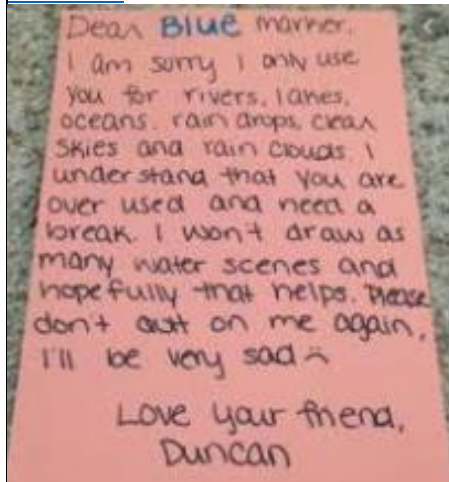 Dear Blue marker,
I am sorry I only use
you for rivers, lakes,
oceans, rain drops, clear
skies and rain clouds. I
understand that you are
over used and need a
break. I won't draw as
many water scenes and
hopefully that helps. Please
don't quit on me again,
I'll be very sad ☹
Love your friend,
Duncan